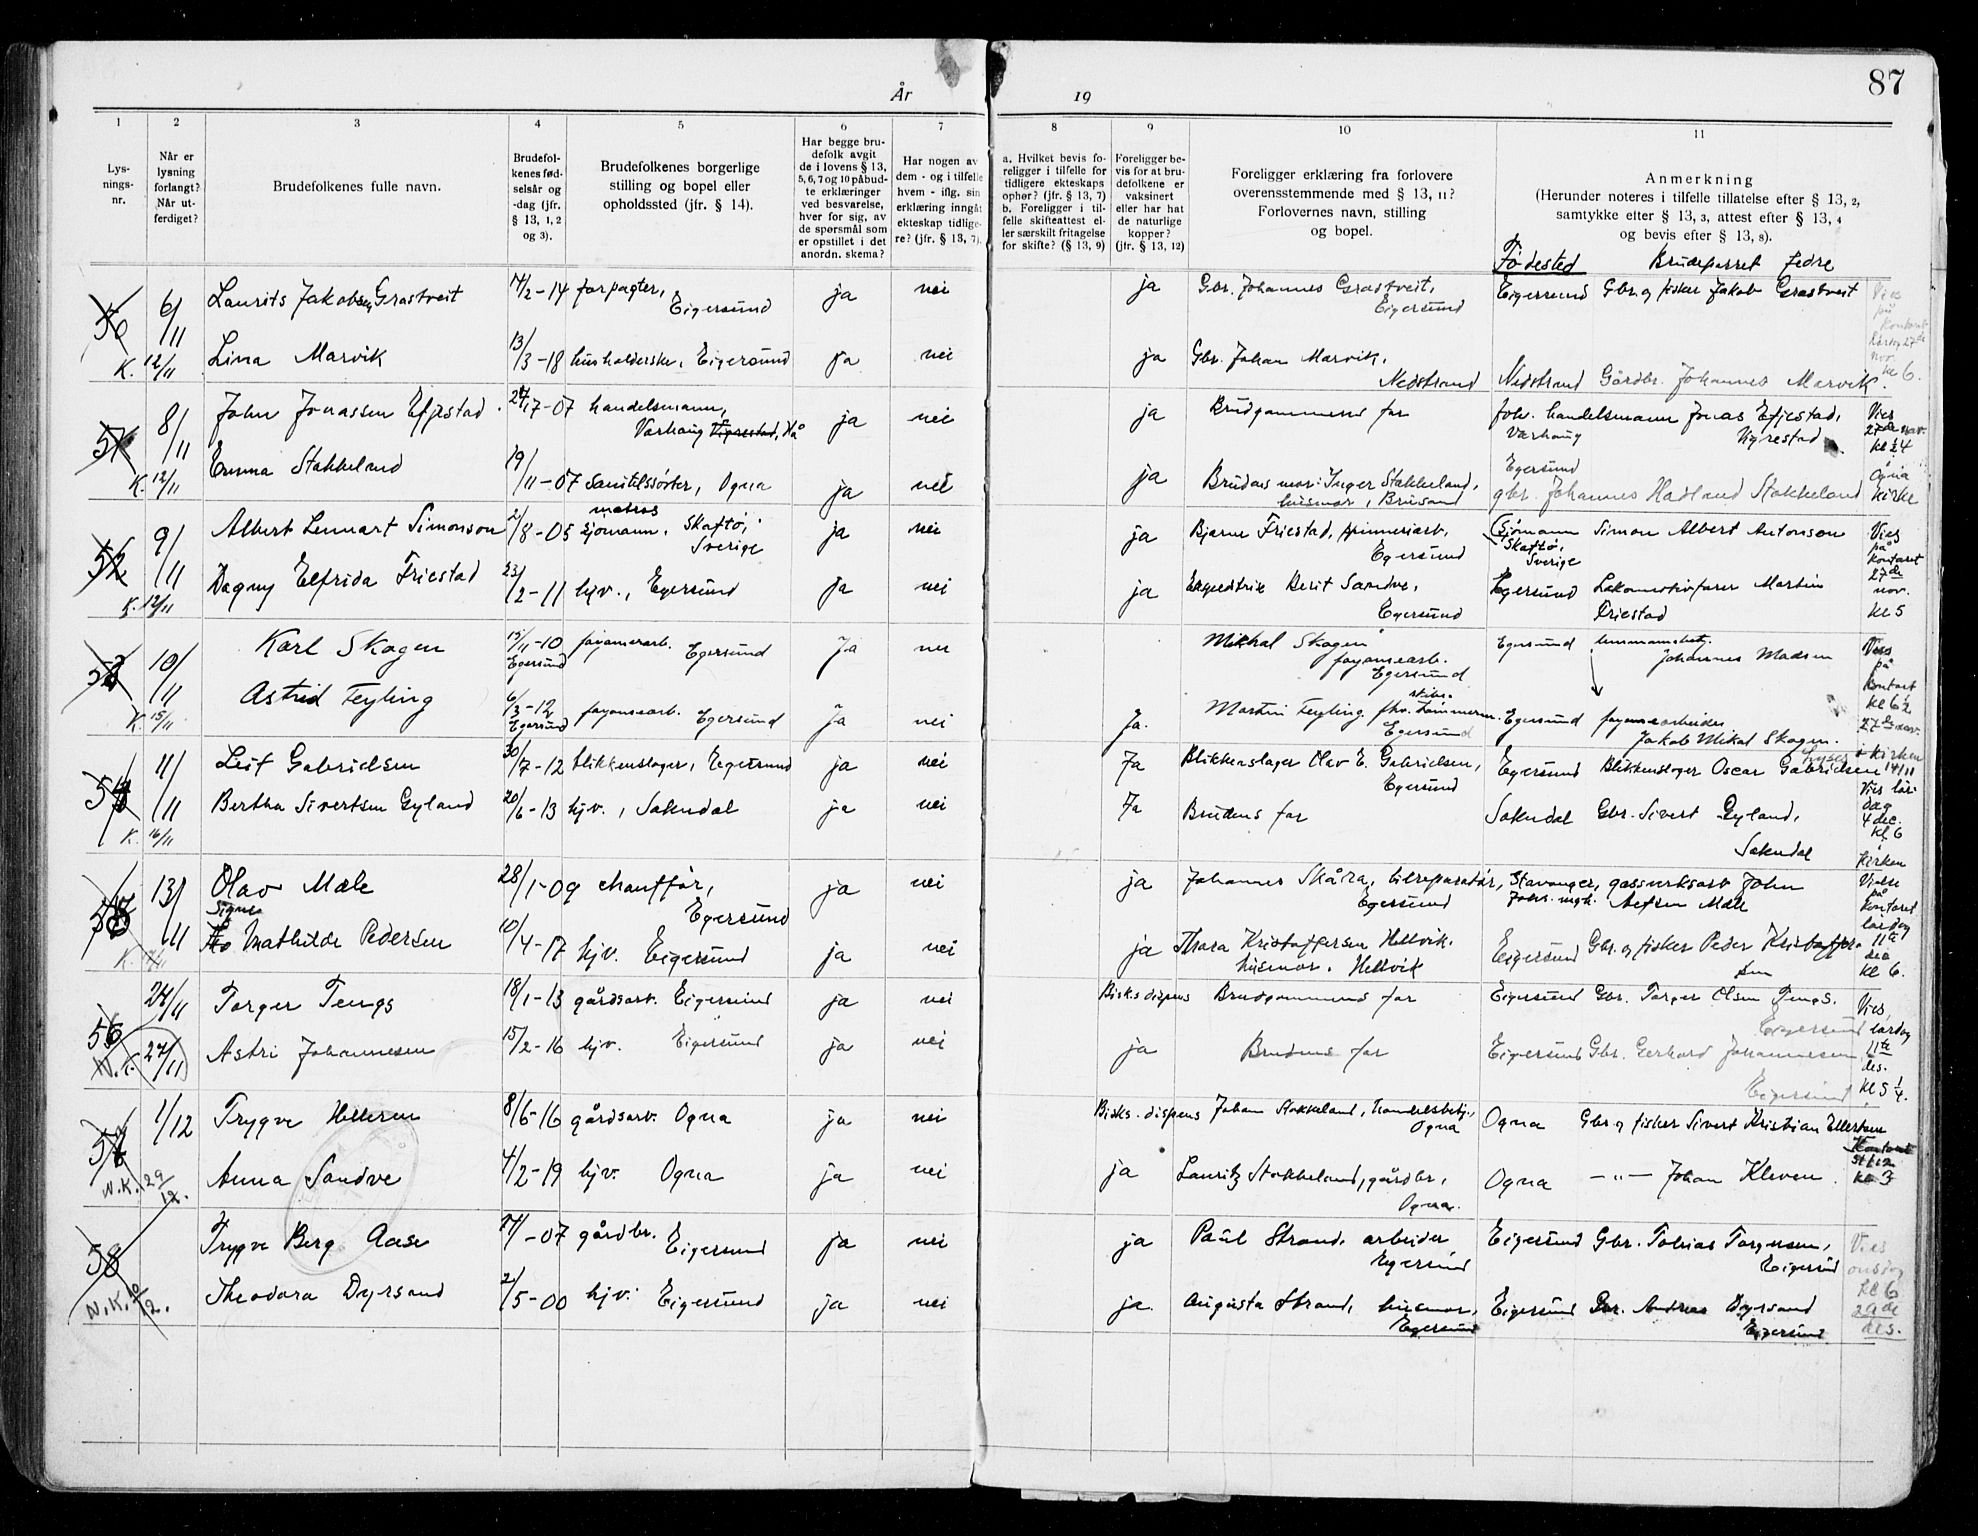 87
År
19
1
2
3
4
5
6
7
8
9
10
11
Lys-
nings-
nr.
Når er
lysning
forlangt?
Når ut-
ferdiget?
Brudefolkenes fulle navn.
Brudefol-
kenes fød-
selsår og
-dag (jfr.
§ 13, 1, 2
og 3).
Brudefolkenes borgerlige
stilling og bopel eller
opholdssted (jfr. § 14).
Har begge bru-
defolk avgit
de i lovens § 13,
5, 6, 7 og 10 påbud-
te erklæringer
ved besvarelse,
hver for sig, av
de spørsmål som
er opstillet i det
anordn. skema?
Har nogen av
dem - og i tilfelle
hvem - iflg. sin
erklæring inngåt
ekteskap tidlige-
re? (jfr. § 13, 7).
a. Hvilket bevis fo-
religger i tilfelle for
tidligere ekteskaps
ophør? (jfr. § 13, 7)
b. Foreligger i til-
felle skifteattest el-
ler særskilt fritagelse
for skifte? (§ 13, 9)
Foreligger be-
vis for at bru-
defolkene er
vaksinert
eller har hat
de naturlige
kopper?
(jfr. § 13, 12)
Foreligger erklæring fra forlovere
overensstemmende med § 13, 11?
Forlovernes navn, stilling
og bopel.
Anmerkning
(Herunder noteres i tilfelle tillatelse efter § 13, 2,
samtykke efter § 13, 3, attest efter § 13, 4
og bevis efter § 13, 8).
Fødested Brudeparret fedre
50 6/11 Laurits Jakobsen Grastveit 4/2-14 forpagter, Eigersund ja nei ja Gbr. Johannes Grastveit, Eigersund Eigersund Gbr. og fisker Jakob Grastveit
Vies på kontoret lørdag 27de nov. kl 6.
K. 12/11 Lina Marvik 13/3-18 husholderske, Eigersund ja nei ja Gbr. Johan Marvik, Nedstrand Nedstrand Gårdbr. Johannes Marvik.
51 8/11 John Jonassen Efjestad 24/7-07 handelsmann, Varhaug Vigrestad, Hå ja nei ja Brudgommens far fhv. handelsmann Jonas Efjestad, Varhaug Vigrestad
Vies 27de nov. kl ½4 Ogna kirke
K. 12/11 Emma Stokkeland 19/11-07 Ogna ja nei ja Brudens mor: Inger Stokkeland, husmor, Brusand Egersund gbr. Johannes Hadland Stokkeland
52 9/11 Albert Lennart Simonson 2/8-05 matros sjømann. Skaftø, Sverige ja nei ja Bjarne Friestad, spinneriarb. Egersund (Sjømann Simon Albert Antonson Skaftø, Sverige
Vies på kontoret 27de nov. kl 5
K. 12/11 Dagny Elfrida Friestad 23/2-11 hjv., Egersund ja nei ja Ekspeditrise Berit Sandve, Egersund Egersund Lokomotivfører Martin Friestad
53 10/11 Karl Skogen 15/11-10 Egersund fayansearb. Egersund Ja nei Mikhal Skogen fayansearb. Egersund Egersund Johannes Madsen
Vies på kontoret kl 6½ 27de nov.
K. 15/11 Astrid Feyling 6/3-12 Egersund fayansearb. Egersund Ja nei Ja. Martin Feyling fhv. skibs-tømmerm. Egersund Egersund fayansearbeider Jakob Mikal Skogen.
54 11/11 Leif Gabrielsen 30/7-12 blikkenslager, Egersund ja nei Ja Blikkenslager Olav E. Gabrielsen, Egersund Egersund Blikkenslager Oscar Gabrielsen
i kirken 14/11 Vies lørdag 4 dec. kl. 6 kirken
K. 16/11 Bertha Sivertsen Gyland 20/6-13 hjv., Sokndal ja nei Ja Brudens far Sokndal Gbr. Sivert Gyland, Sokndal
55 13/11 Olav Mæle 28/1-09 chauffør, Egersund ja nei ja Johannes Skåra, bilreparatør, Egersund Stavanger, gassverksarb John Mæle
Vielse på kontoret lørdag 11te des kl 6.
K. Signe Mathilde Pedersen 10/4-17 hjv. Eigersund ja nei ja Thora Kristoffersen Hellvik. husmor. Hellvik Eigersund Gbr. og fisker Peder Kristoffersen
56 24/11 Torger Tengs 18/1-13 gårdsarb. Eigersund ja nei Bisks dispens Brudgommens far Eigersund Gbr. Torger Olsen Tengs. Eigersund
Vies, lørdag 11te des. kl 5¼.
N.K. 27/11 Astri Johannesen 15/2-16 hjv. Eigersund ja nei ja Brudens far Eigersund Gbr. Gerhard Johannesen Eigersund
57 1/12 Trygve Helleren 8/6-16 gårdsarb. Ogna ja nei Bisks. dispens Johan Stokkeland, handelsbetj., Ogna Ogna Gbr. og fisker Sivert Kristian Ellertsen
Kontoret kl 3
N.K. 29/12. Anna Sandve 4/2-19 hjv. Ogna ja nei ja Lauritz Stokkeland, gårdbr., Ogna. Ogna —"— Johan Kleven.
58 Trygve Berg Aase -07 gårdbr. Eigersund ja nei ja Paul Strand, arbeider Egersund Eigersund Gbr. Tobias Torgersen, Eigersund
Vies onsdag kl 6 29de des.
N.K. 12. Theodora Dyrsand 2/5-00 hjv. Eigersund ja nei ja. Augusta Strand, husmor, Egersund Eigersund Gbr. Andreas Dyrsand Eigersund